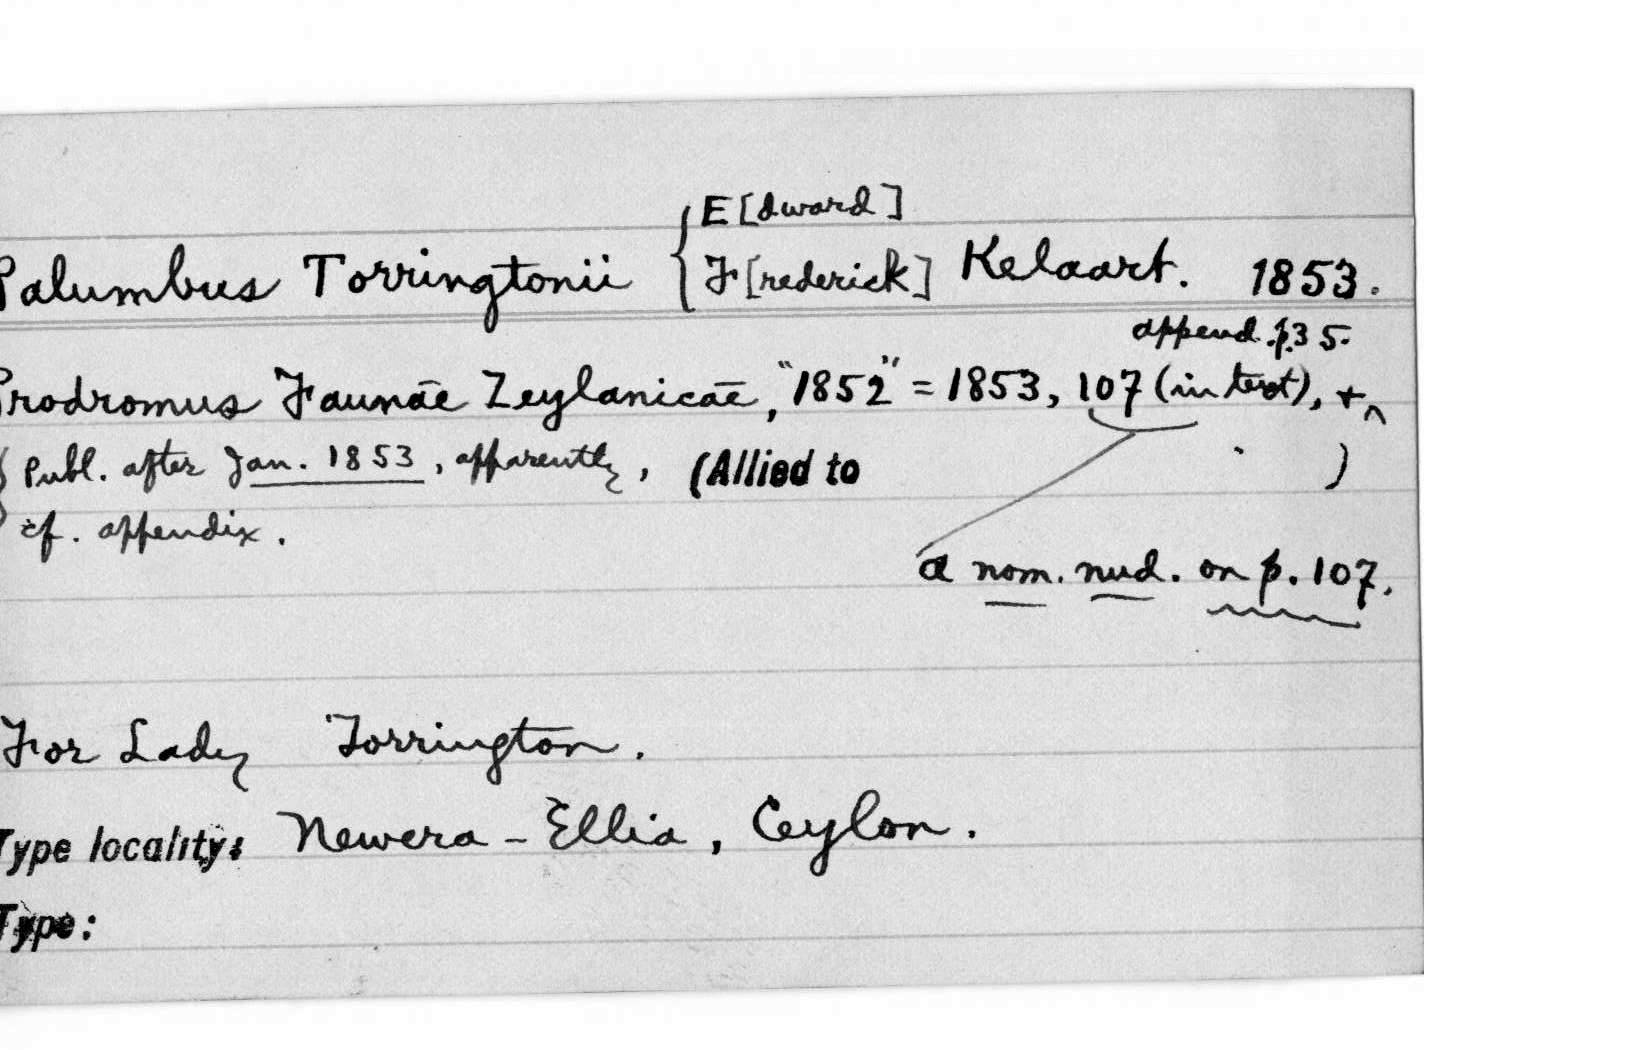 E[dward]
Palumbus Torringtonii F[rederick] Kelaart. 1853.
append. p.35.
Prodromus Faunāe Zeylanicāe, "1852" = 1853, 107 (in text), + ^
{ Publ. after Jan. 1853, apparently, (Allied to )
cf. appendix.
a nom. nud. on p. 107.
For Lady Torrington.
Type locality: Newera-Ellia, Ceylon.
Type: